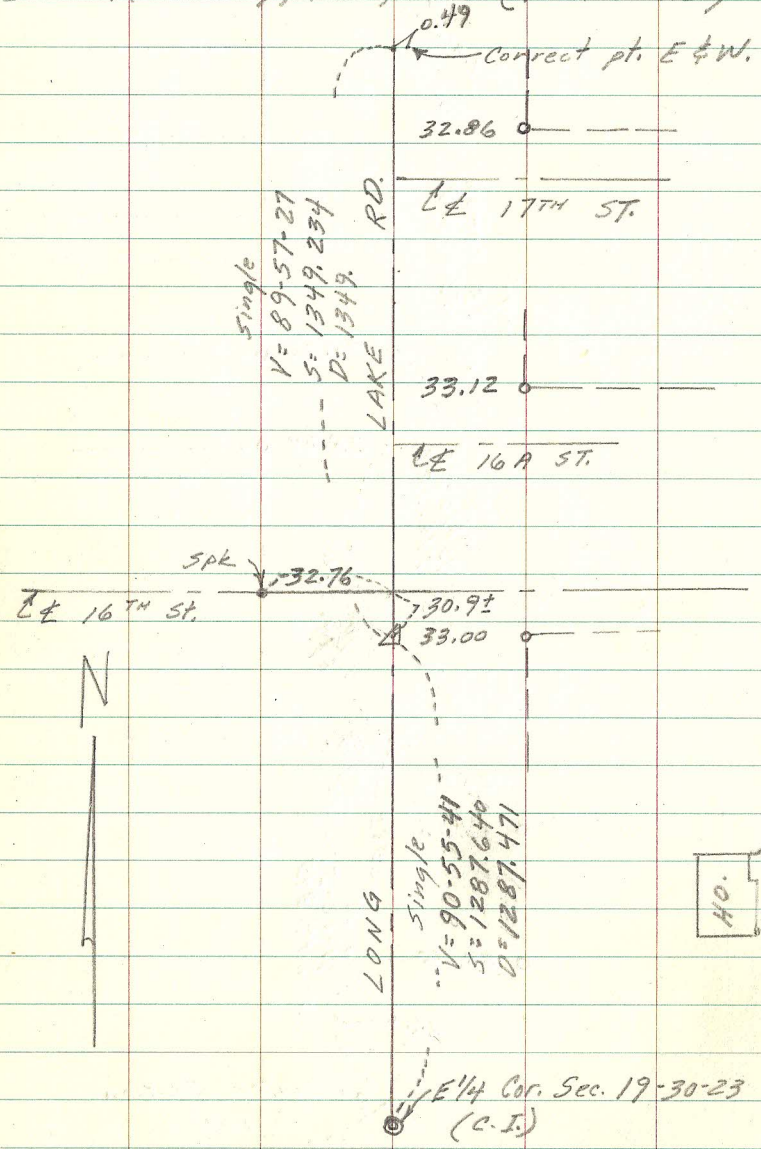 0.49
Correct pt. E & W.
32.86
℄ 17TH ST.
Single
V= 89-57-27
S= 1349.234
D= 1349.
LAKE RD.
33.12
℄ 16A ST.
Spk
32.76
℄ 16TH St.
30.9±
33.00
N
Single
V= 90-55-41
S= 1287.640
D= 1287.471
LONG
HO.
E1/4 Cor. Sec. 19-30-23
(C.I.)